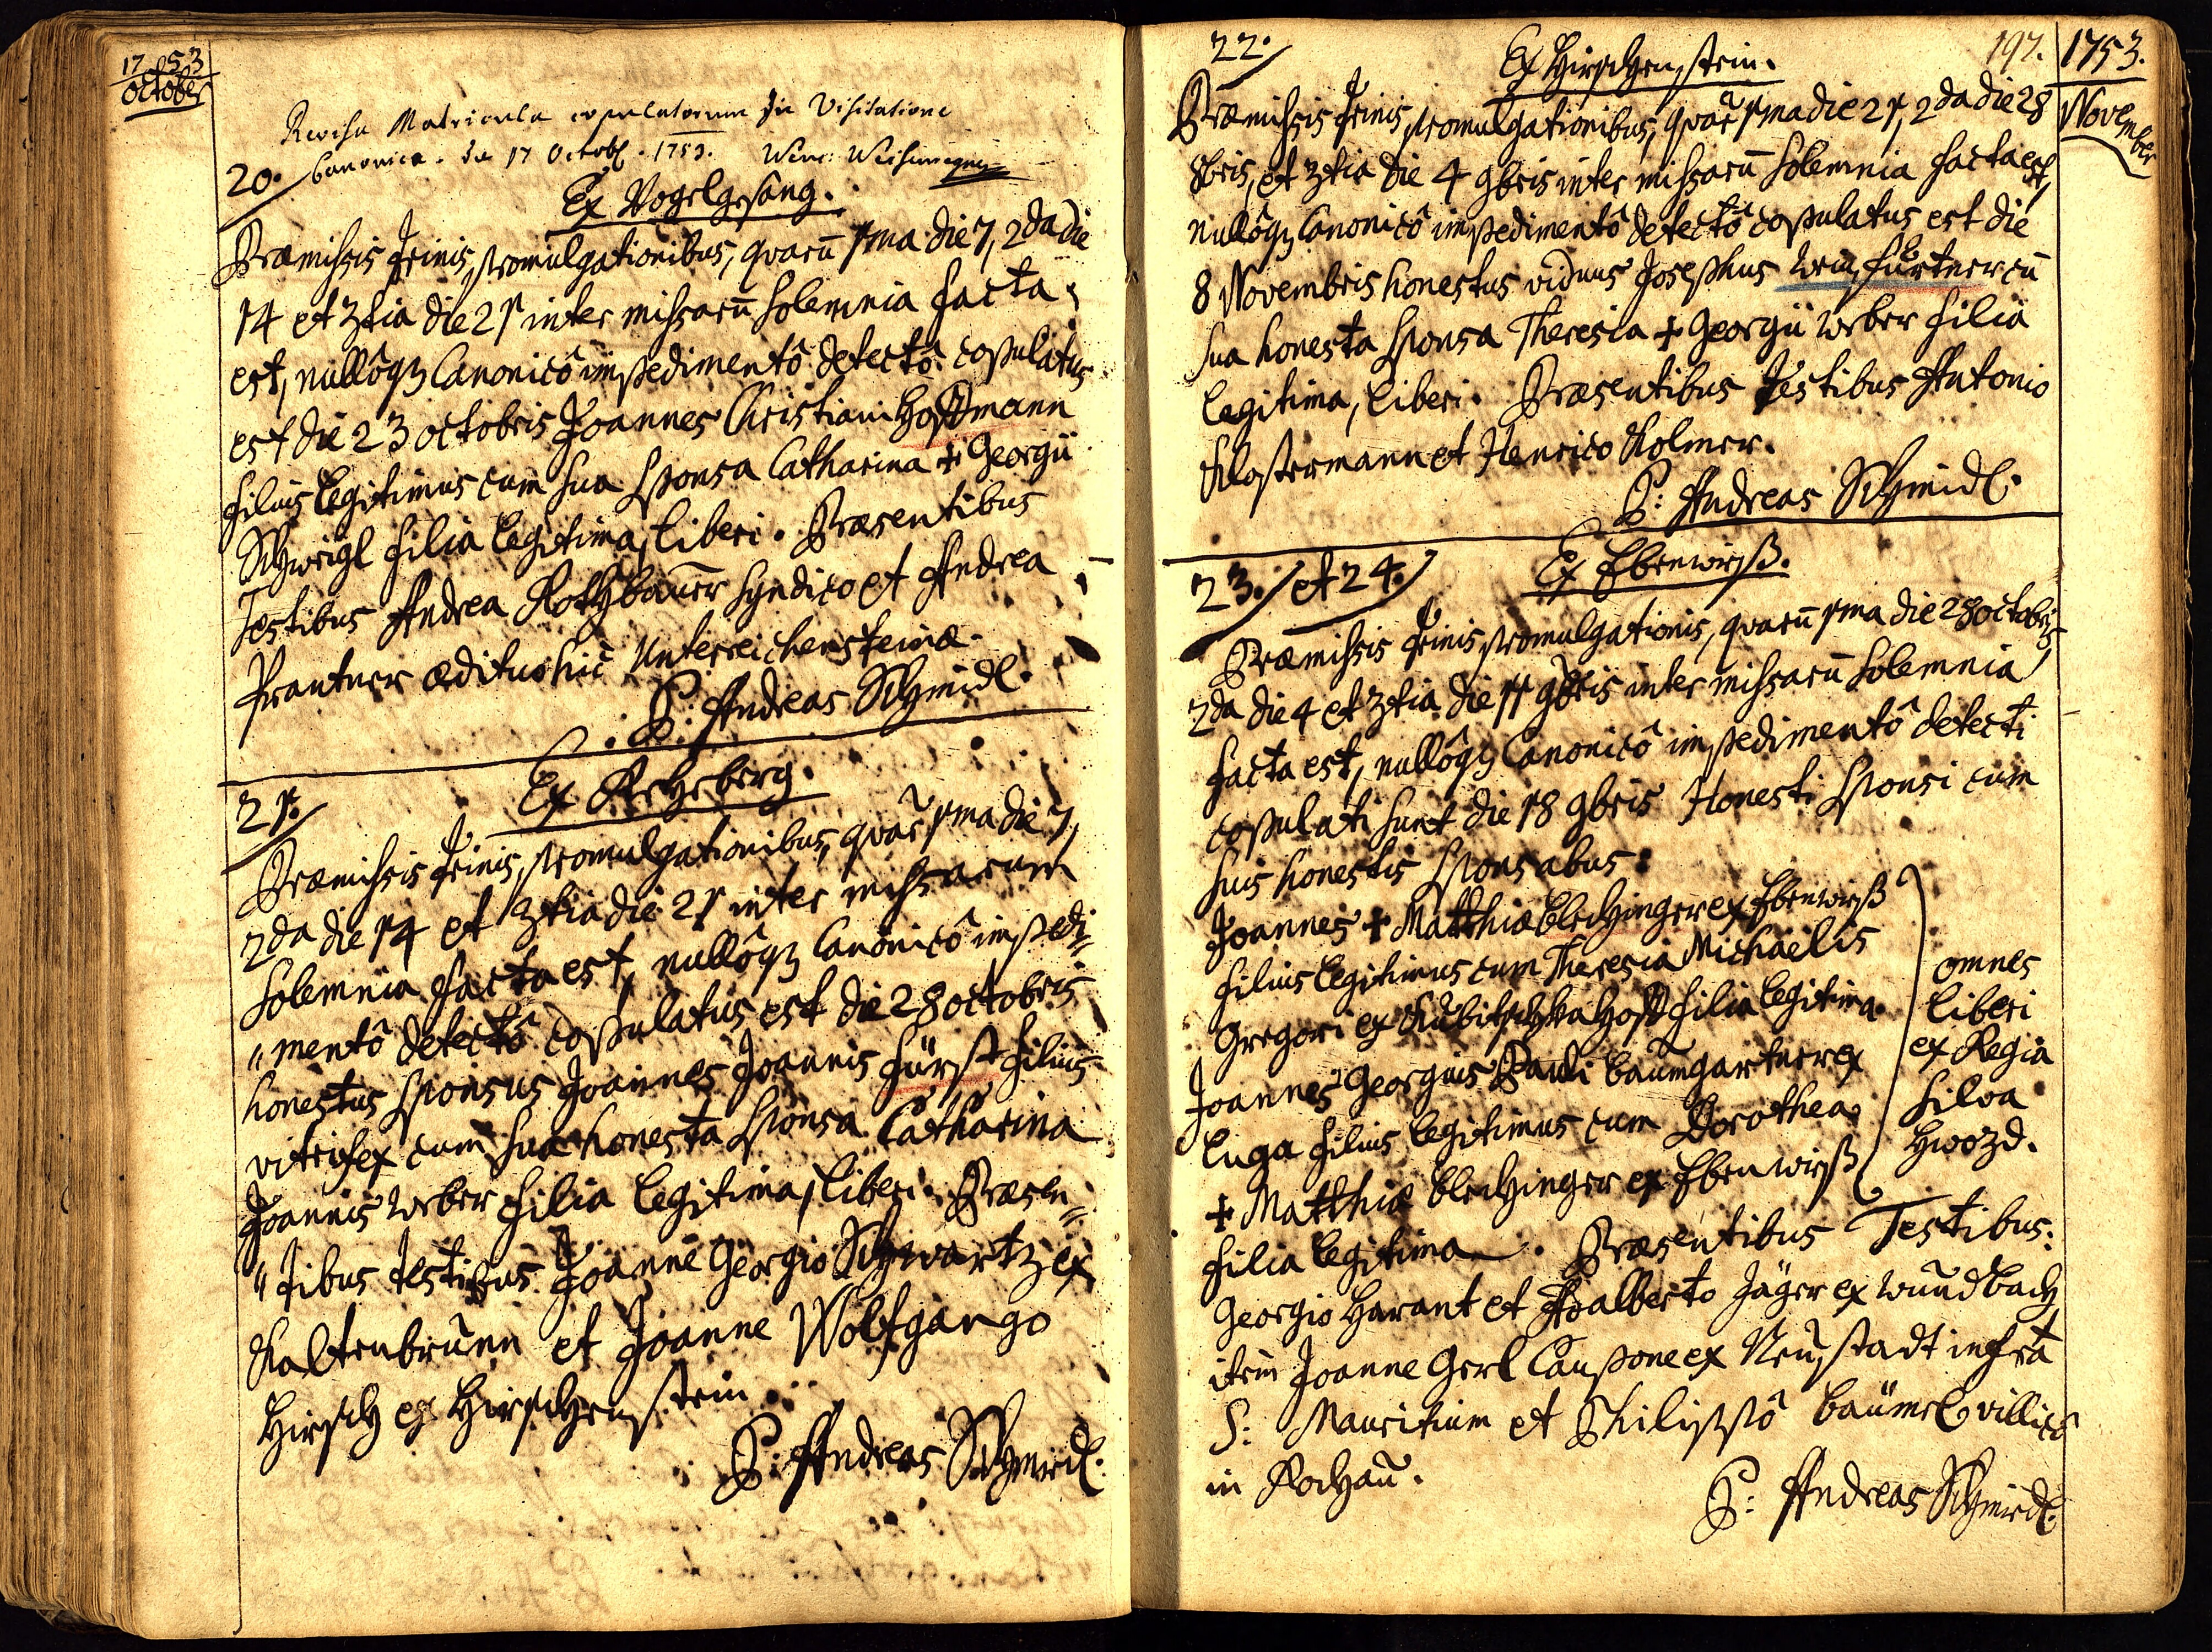 1753
October
Revisa Matricula copulatorum in Visitatione
Canonica. die 17 Octob. 1753.
20.
Ex Vogelgesang.
Præmissis trinis promulgationibus, quarū 1ma die 7, 2da die
14 et 3tia die 21 inter missarū solemnia facta
est, nullôq3 Canonicô impedimentô detectô copulatus
est die 23 octobris Joannes Christiani Hoffmann
filius legitimus cum sua sponsa Catharina + Georgii
Schweigl filia legitima, liberi. Præsentibus
Testibus Andrea Rothbaŭer syndico et Andrea
Prantner ædituo hic Unterreichensteinæ.
P: Andreas Schmidl.
21.
Ex Rehberg.
Præmissis trinis promulgationibus, quar̃ 1ma die 7,
2da die 14 et 3tia die 21 inter missarum
solemnia facta est, nullôq3 Canonicô impedi=
"mentô detectô copulatus est die 28 octobris
honestus sponsus Joannes Joannis Fürst filius
vitrifex cum sua honesta sponsa Catharina
Joannis Weber filia legitima, liberi. Præsen=
"tibus testibus Joanne Georgio Schwartz ex
Kaltenbrŭnn et Joanne Wolfgango
Hirsch ex Hirschenstein.
P: Andreas Schmidl.
22.
Ex Hirschenstein.
197.
1753.
November
Præmissis trinis promulgationibus, quar̃ 1ma die 21, 2da die 28
8bris, et 3tia die 4 9bris inter missarū solemnia facta est,
nullôq3 Canonicô impedimentô detectô copulatus est die
8 Novembris honestus viduus Josephus Weinfürtner cū
sua honesta sponsa Theresia + Georgii Weber filiâ
legitima, liberi. Præsentibus Testibus Antonio
Klostermann et Henrico Kolmer.
P: Andreas Schmidl.
23. et 24.
Ex Ebenwiß.
Præmissis trinis promulgationis, quarū 1ma die 28 octobris
2da die 4 et 3tia die 11 9bris inter missarū solemnia
facta est, nullôq3 Canonicô impedimentô detecti
copulati sunt die 18 9bris Honesti sponsi cum
suis honestis sponsabus:
Joannes + Matthiæ Blechinger ex Ebenwiß
filius legitimus cum Theresia Michaelis
Gregori ex Kubitschkahoff filia legitima.
Joannes Georgius Pauli Baŭmgartner ex
Luga filius legitimus cum Dorothea
+ Matthiæ Blechinger ex Ebenwiß
filia legitima. Præsentibus Testibus:
omnes
liberi
ex Regia
silva
Hwozd.
Georgio Harant et Adalberto Jäger ex Wŭndbach
item Joanne Gerl Caupone ex Neŭstadt infra
S: Mauritium et Philippô Baŭml villicô
in Kochaŭ.
P: Andreas Schmidl.